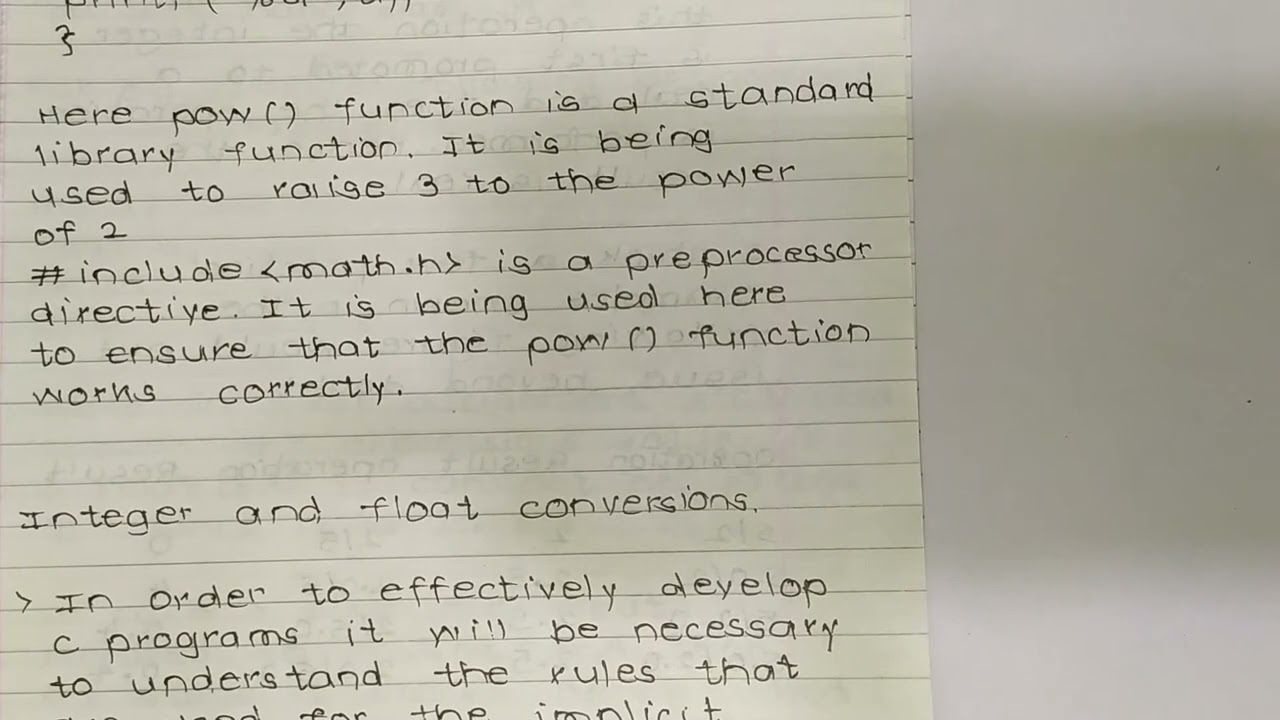 }
Here pow() function is a standard
library function. It is being
used to raise 3 to the power
of 2
#include <math.h> is a preprocessor
directive. It is being used here
to ensure that the pow() function
works correctly.
Integer and float conversions.
> In order to effectively develop
C programs it will be necessary
to understand the rules that
for the implicit